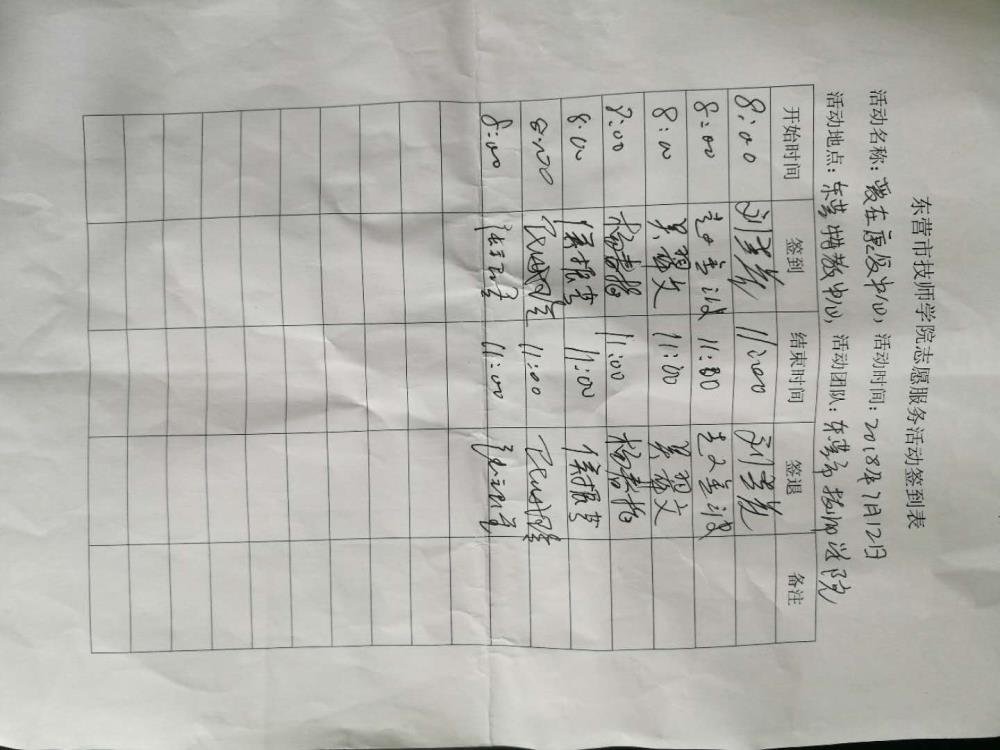 东营市技师学院志愿服务活动签到表
活动名称：爱在康复中心，活动时间：2018年7月12日
活动地点：东营特教中心，活动团队：东营市技师学院
开始时间 签到 结束时间 签退 备注
8:00 11:00
8:00 11:00
8:00 吴翠文 11:00 吴翠文
8:00 杨春梅 11:00 杨春梅
8:00 侯振春 11:00 侯振春
8:00 11:00
8:00 11:00